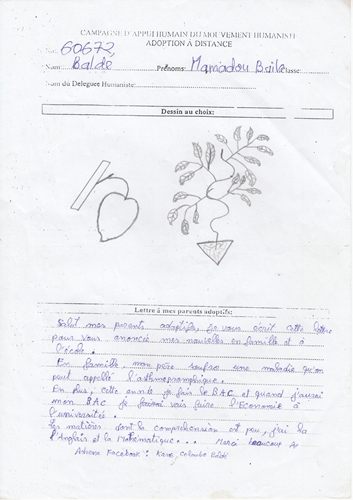 CAMPAGNE D'APPUI HUMAIN DU MOUVEMENT HUMANISTE
ADOPTION A DISTANCE
No: 60672
Nom: Baldé Prénoms: Mamadou Baila Classe:
Nom du Déléguée Humaniste:
Dessin au choix:
Lettre à mes parents adoptifs:
Salut mes parents adoptifs, je vous écrit cette lettre
pour vous annoncé mes nouvelles en famille et à
l'école.
En famille, mon père souffre une maladie qu'on
peut appellé
En plus, cette année je fais le BAC et quand j'aurai
mon BAC je vais faire l'Economie à
l'université.
Les matières dont la compréhension est peu, j'ai la
l'Anglais et la Mathématique... Merci beaucoup
Adresse Facebook: Baldé